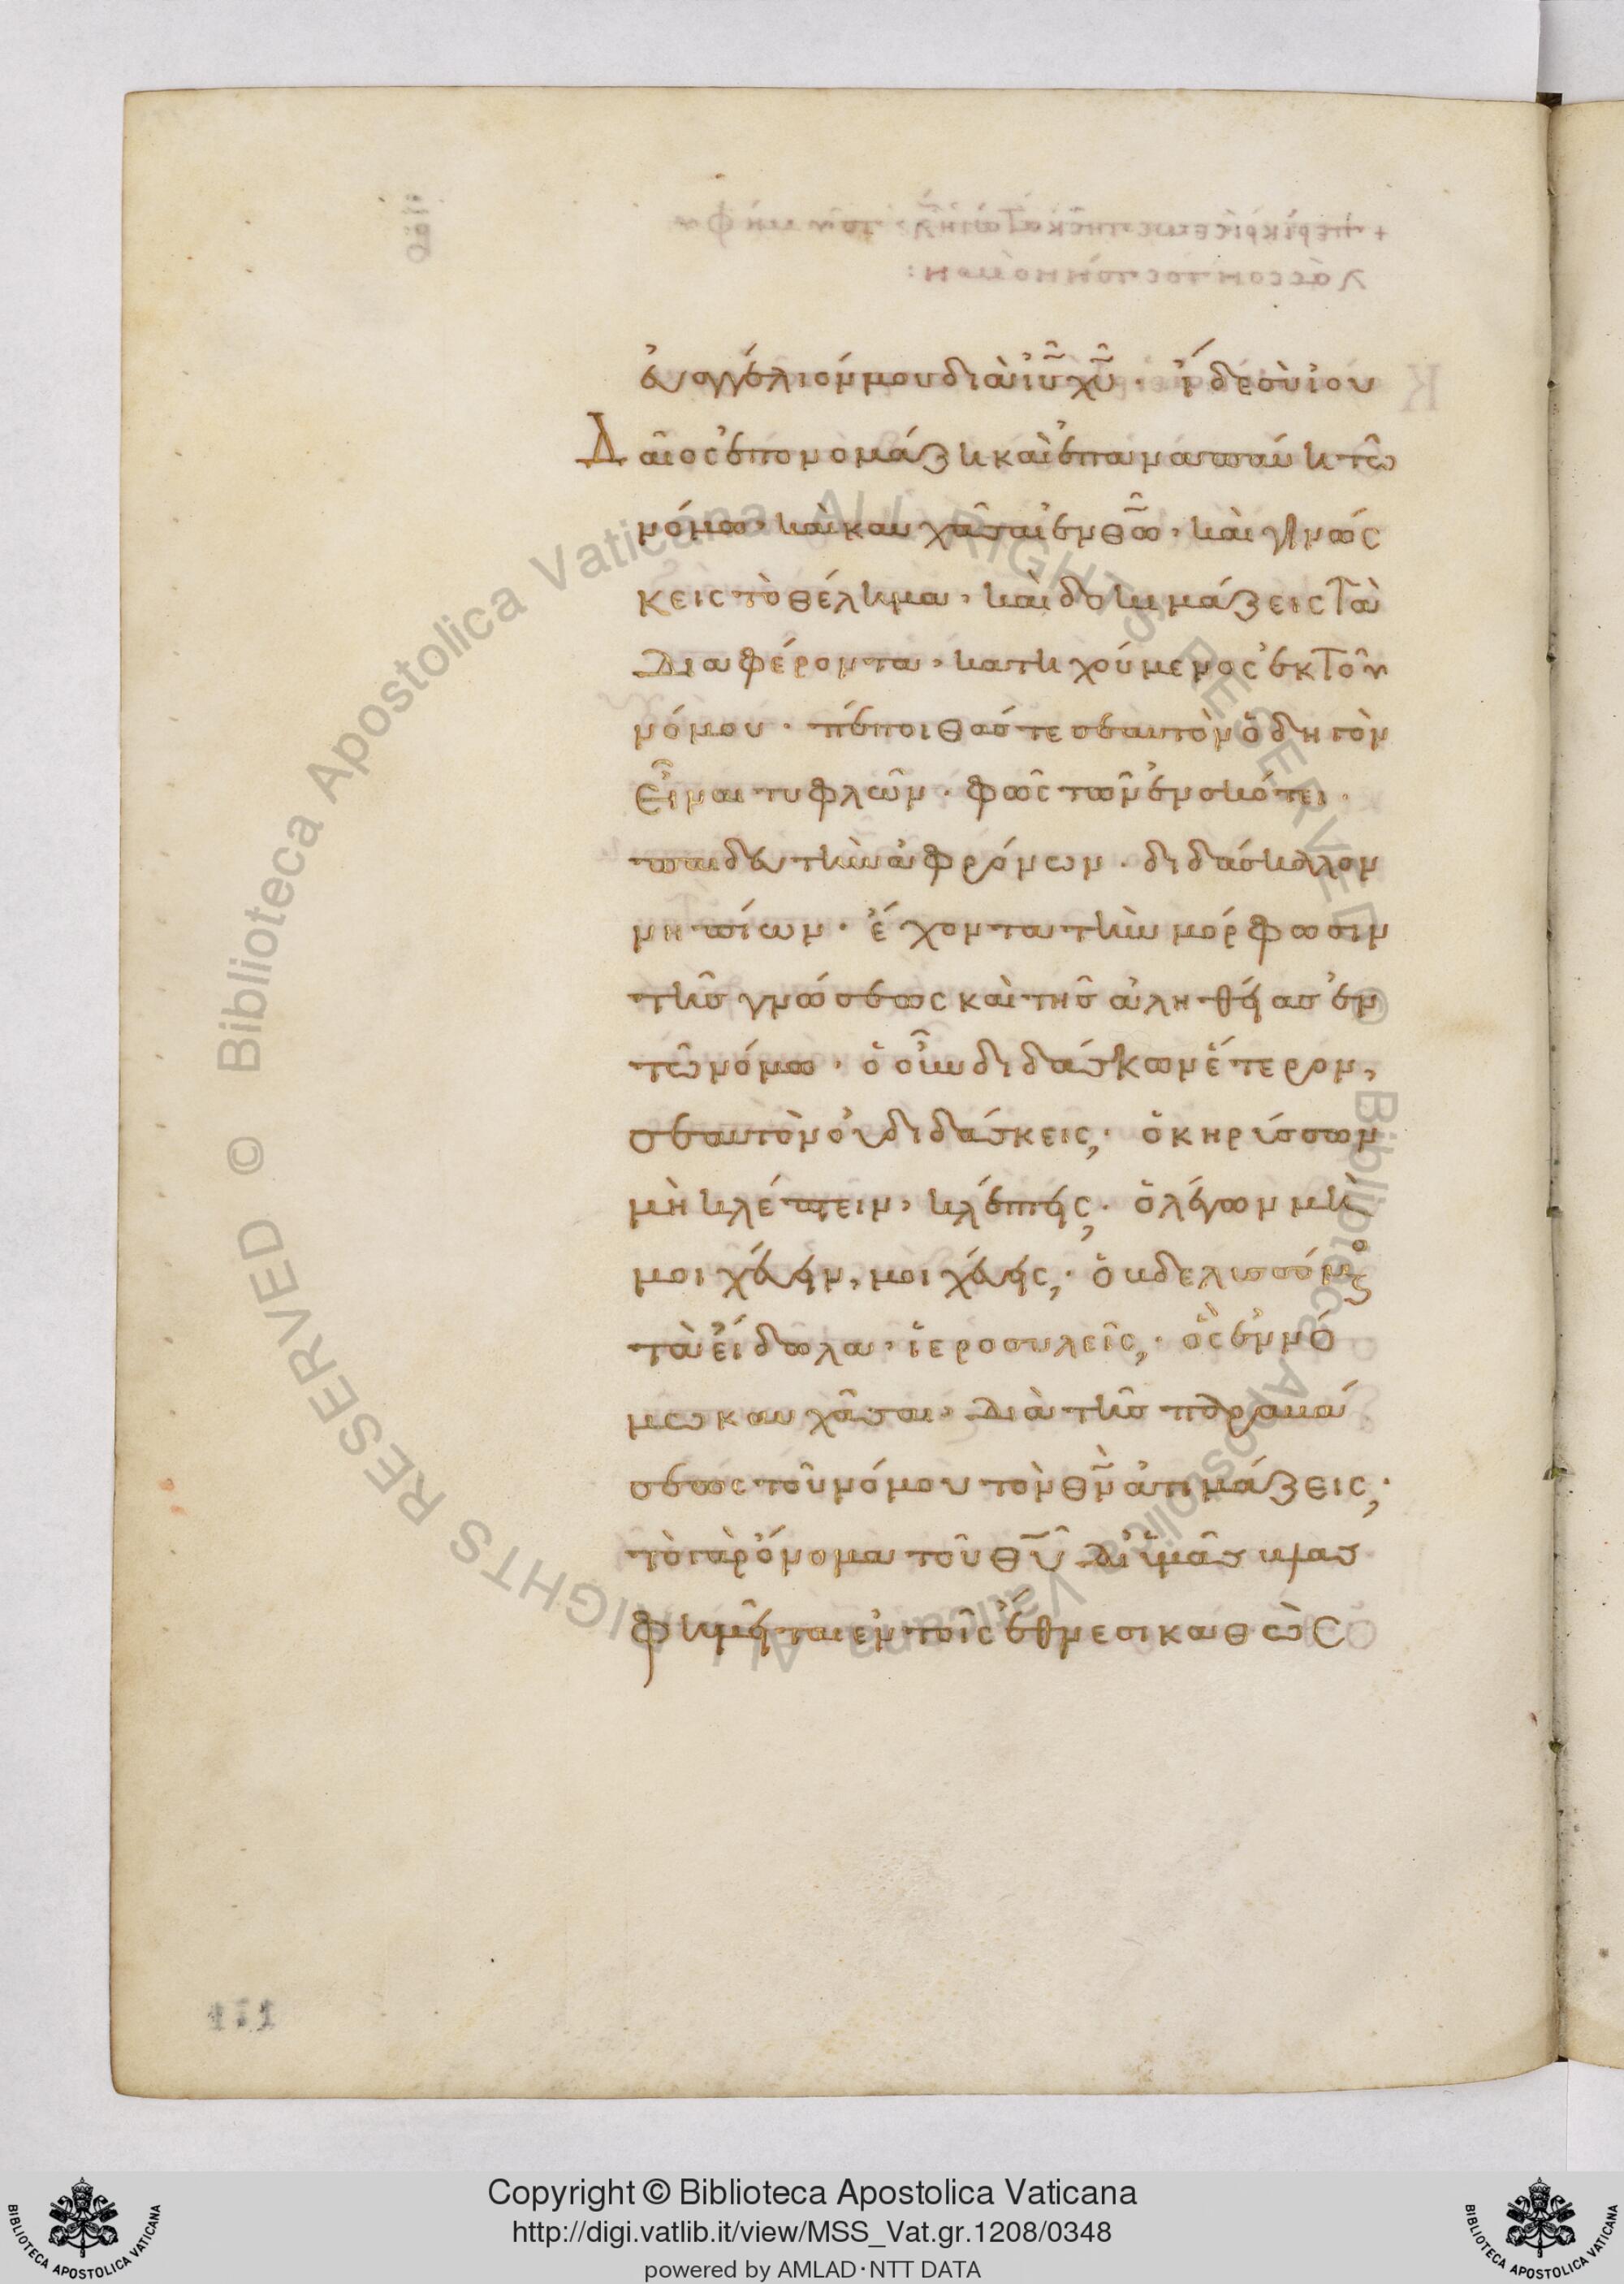 εὐαγγέλιόν μου διὰ ιῦ χῦ· ἴδε σὺ ἰου
δαῖος ἐπονομάζη καὶ ἐπαναπαύη τῶ
νόμω, καὶ καυχᾶσαι ἐν θῶ, καὶ γινώς
κεις τὸ θέλημα, καὶ δοκιμάζεις τὰ
διαφέροντα, κατηχούμενος ἐκ τοῦ
νόμου· πέποιθάς τε σεαυτὸν ὁδηγὸν
εἶναι τυφλῶν· φῶς τῶν ἐν σκότει·
παιδευτὴν ἀφρόνων· διδάσκαλον
νηπίων· ἔχοντα τὴν μόρφωσιν
τῆς γνώσεως καὶ τῆς ἀληθείας ἐν
τῶ νόμω· ὁ οὖν διδάσκων ἕτερον,
σεαυτὸν οὐ διδάσκεις; ὁ κηρύσσων
μὴ κλέπτειν, κλέπτεις; ὁ λέγων μὴ
μοιχεύειν, μοιχεύεις; ὁ βδελυσσόμενος
τὰ εἴδωλα, ἱεροσυλεῖς; ὃς ἐν νό
μω καυχᾶσαι, διὰ τῆς παραβά
σεως τοῦ νόμου τὸν θν ἀτιμάζεις;
τὸ γὰρ ὄνομα τοῦ θῦ δι' ὑμᾶς βλας
φημεῖται ἐν τοῖς ἔθνεσι καθὼς
Copyright © Biblioteca Apostolica Vaticana
http://digi.vatlib.it/view/MSS_Vat.gr.1208/0348
powered by AMLAD·NTT DATA
BIBLIOTECA APOSTOLICA VATICANA
BIBLIOTECA APOSTOLICA VATICANA
© Biblioteca Apostolica Vaticana ALL RIGHTS RESERVED
© Biblioteca Apostolica Vaticana ALL RIGHTS RESERVED